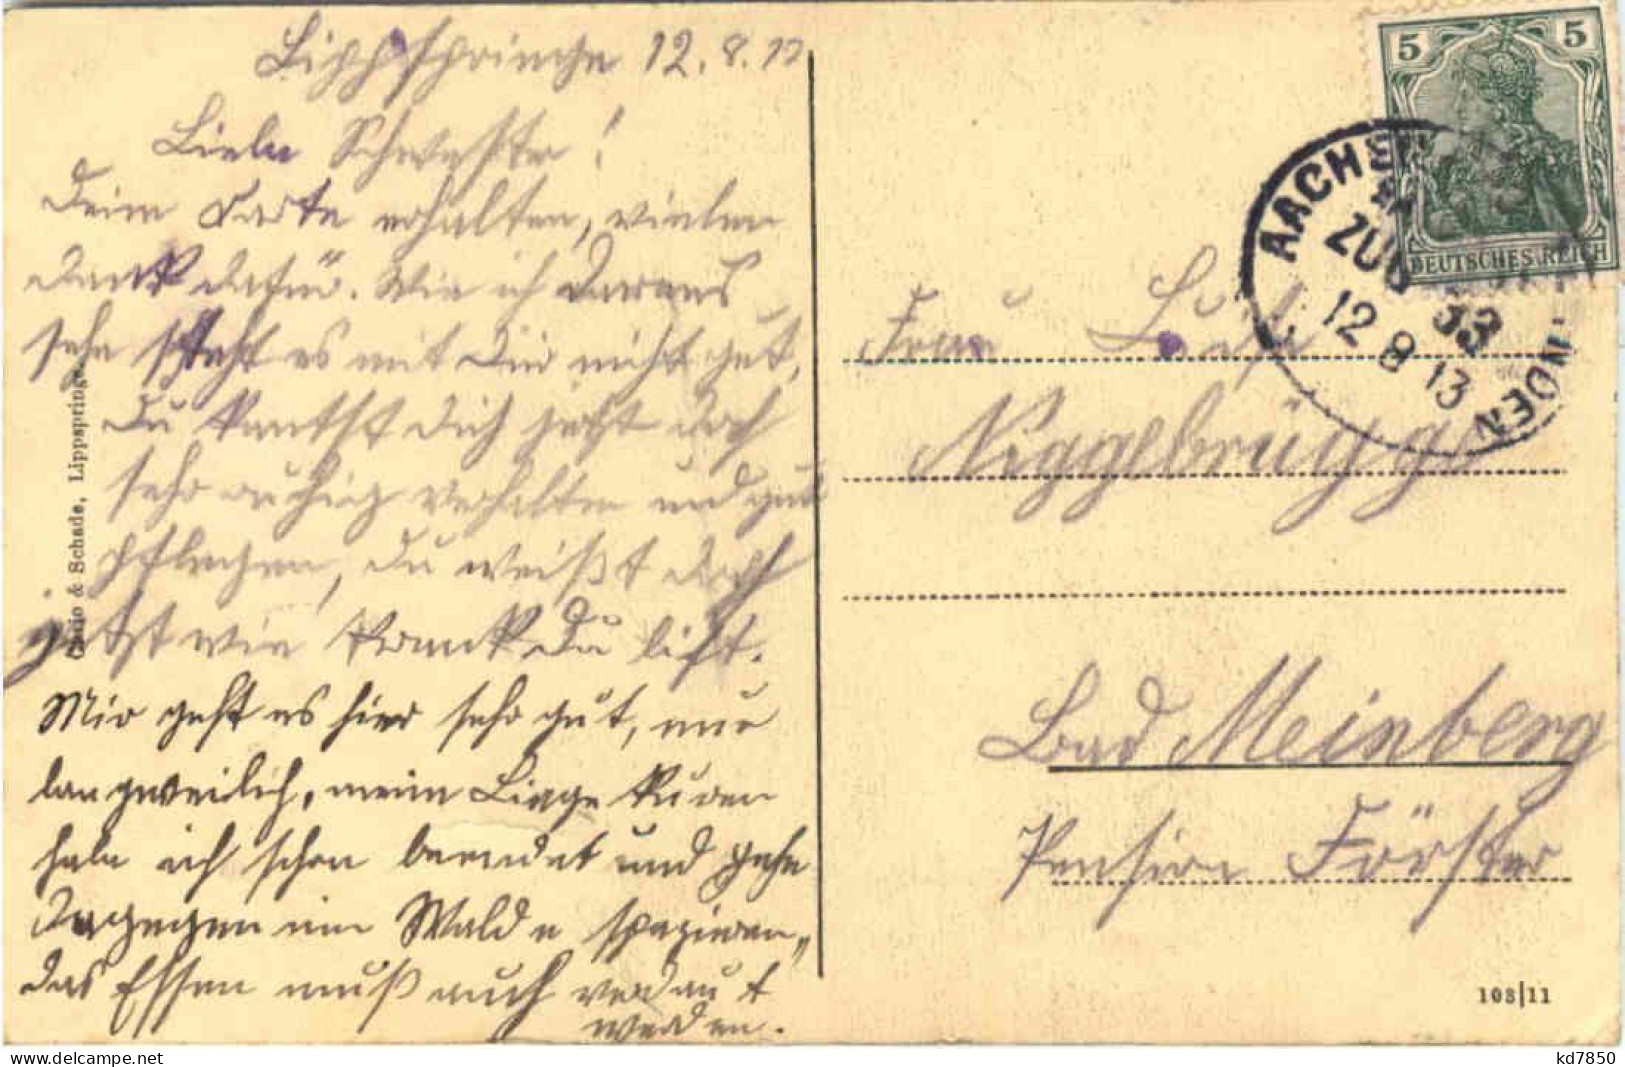 Lippspringe 12.8.13
Liebe Schwester!
Deine Karte erhalten, vielen
Dank dafür. Wie ich daraus
sehe steht es mit Dir nicht gut,
Du kannst Dich jetzt doch
sehr ruhig verhalten und gut
pflegen, Du weißt doch
jetzt wie krank Du bist.
Mir geht es hier sehr gut, nur
langweilich, meine Liege kuren
habe ich schon beendet und gehe
dagegen im Walde spazieren,
das Essen muß auch verdaut
werden.
& Schade, Lippspringe
5 5
DEUTSCHES REICH
AACHEN
ZUG 33
12 8 13
Frau
Niggebrügge
Bad Meinberg
Pension Förster
108|11
kd7850